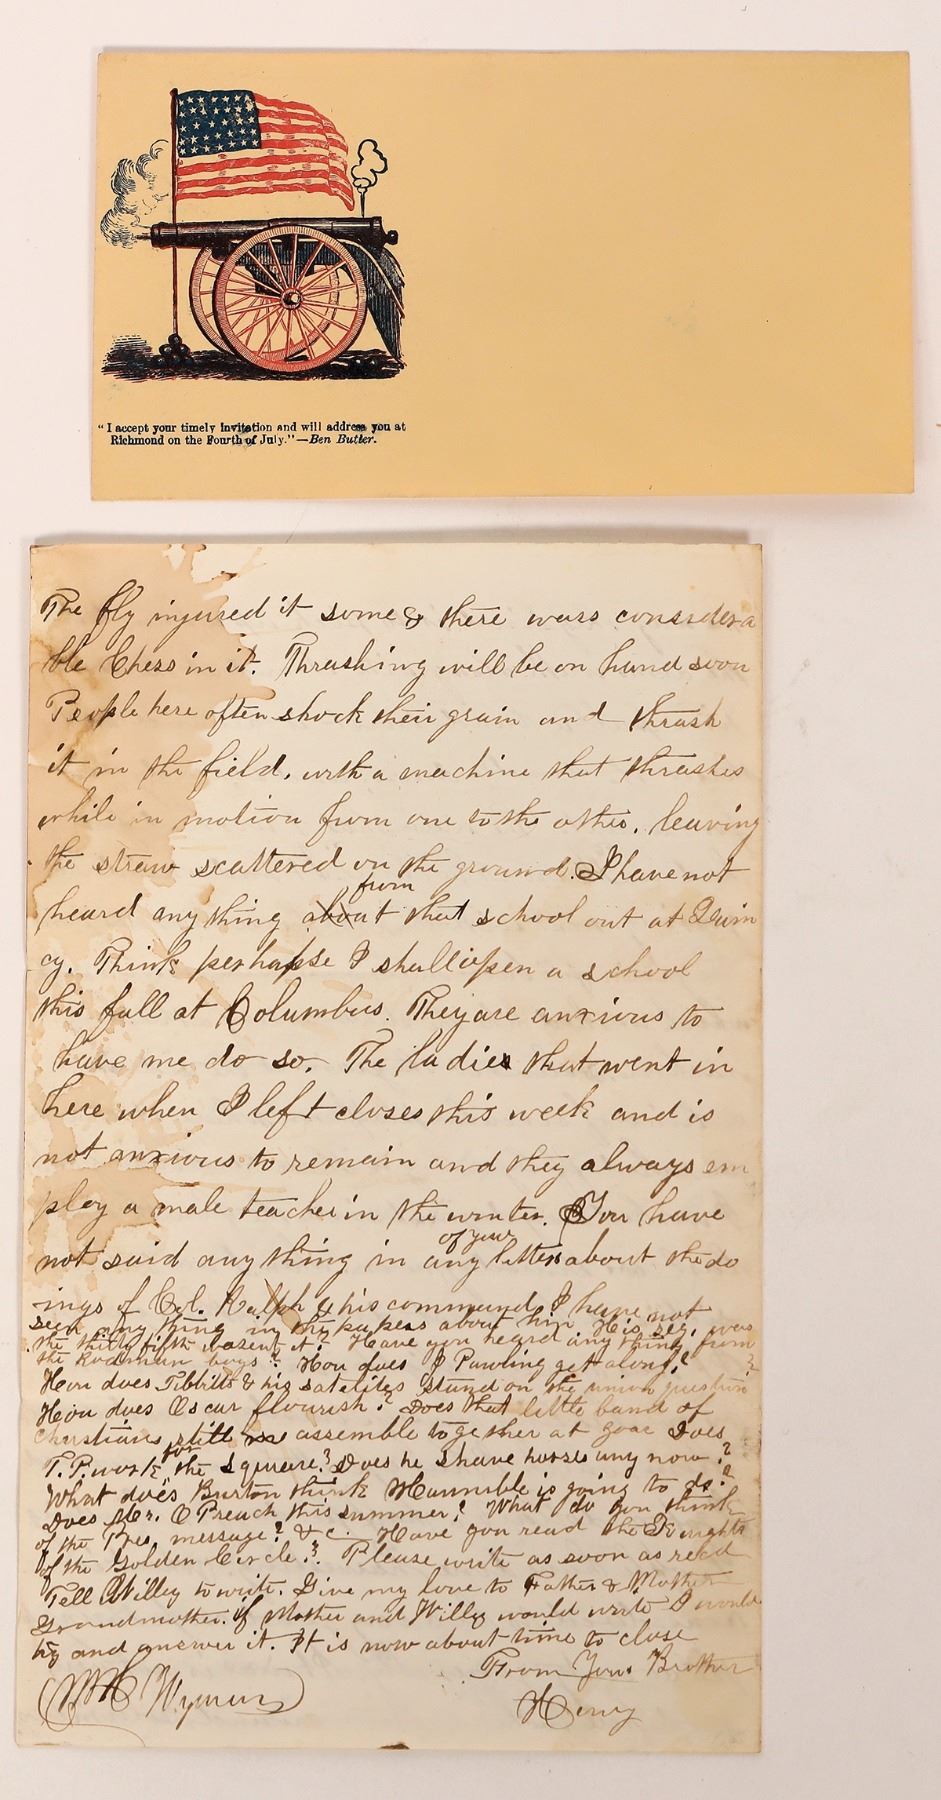 "I accept your timely invitation and will address you at
Richmond on the Fourth of July."—Ben Butler.
The fly injured it some & there was considera
ble Chess in it. Thrashing will be on hand soon
People here often shock their grain and thrash
it in the field, with a machine that thrashes
while in motion from one to the other, leaving
the straw scattered on the ground. I have not
from
heard any thing about that school out at Quin
cy. Think perhapse I shall open a school
this fall at Columbus. They are anxious to
have me do so. The ladies that went in
here when I left closes this week and is
not anxious to remain and they always em
ploy a male teacher in the winter. You have
of your
not said any thing in any letters about the do
ings of Col. Ralph & his command I have not
seen any thing in the papers about him His reg. was
the thirty fifth wasent it? Have you heard any thing from
the Rodman boys? How does J Pawling get along?
How does Tibbitts & his satelites stand on the union question?
How does Oscar flourish? Does that little band of
Christians still assemble together at Does
for
T.P. work the square? Does he shave horses any now?
What does Burton think Hannible is going to do?
Does Mr. O Preach this summer? What do you think
of the Pres. message? & c. Have you read the Knights
of the Golden Circle? Please write as soon as recd
Tell Willey to write. Give my love to Father & Mother
Grandmother. if Mother and Willey would write I would
try and answer it. It is now about time to close
From Your Brother
Wyman
Henry